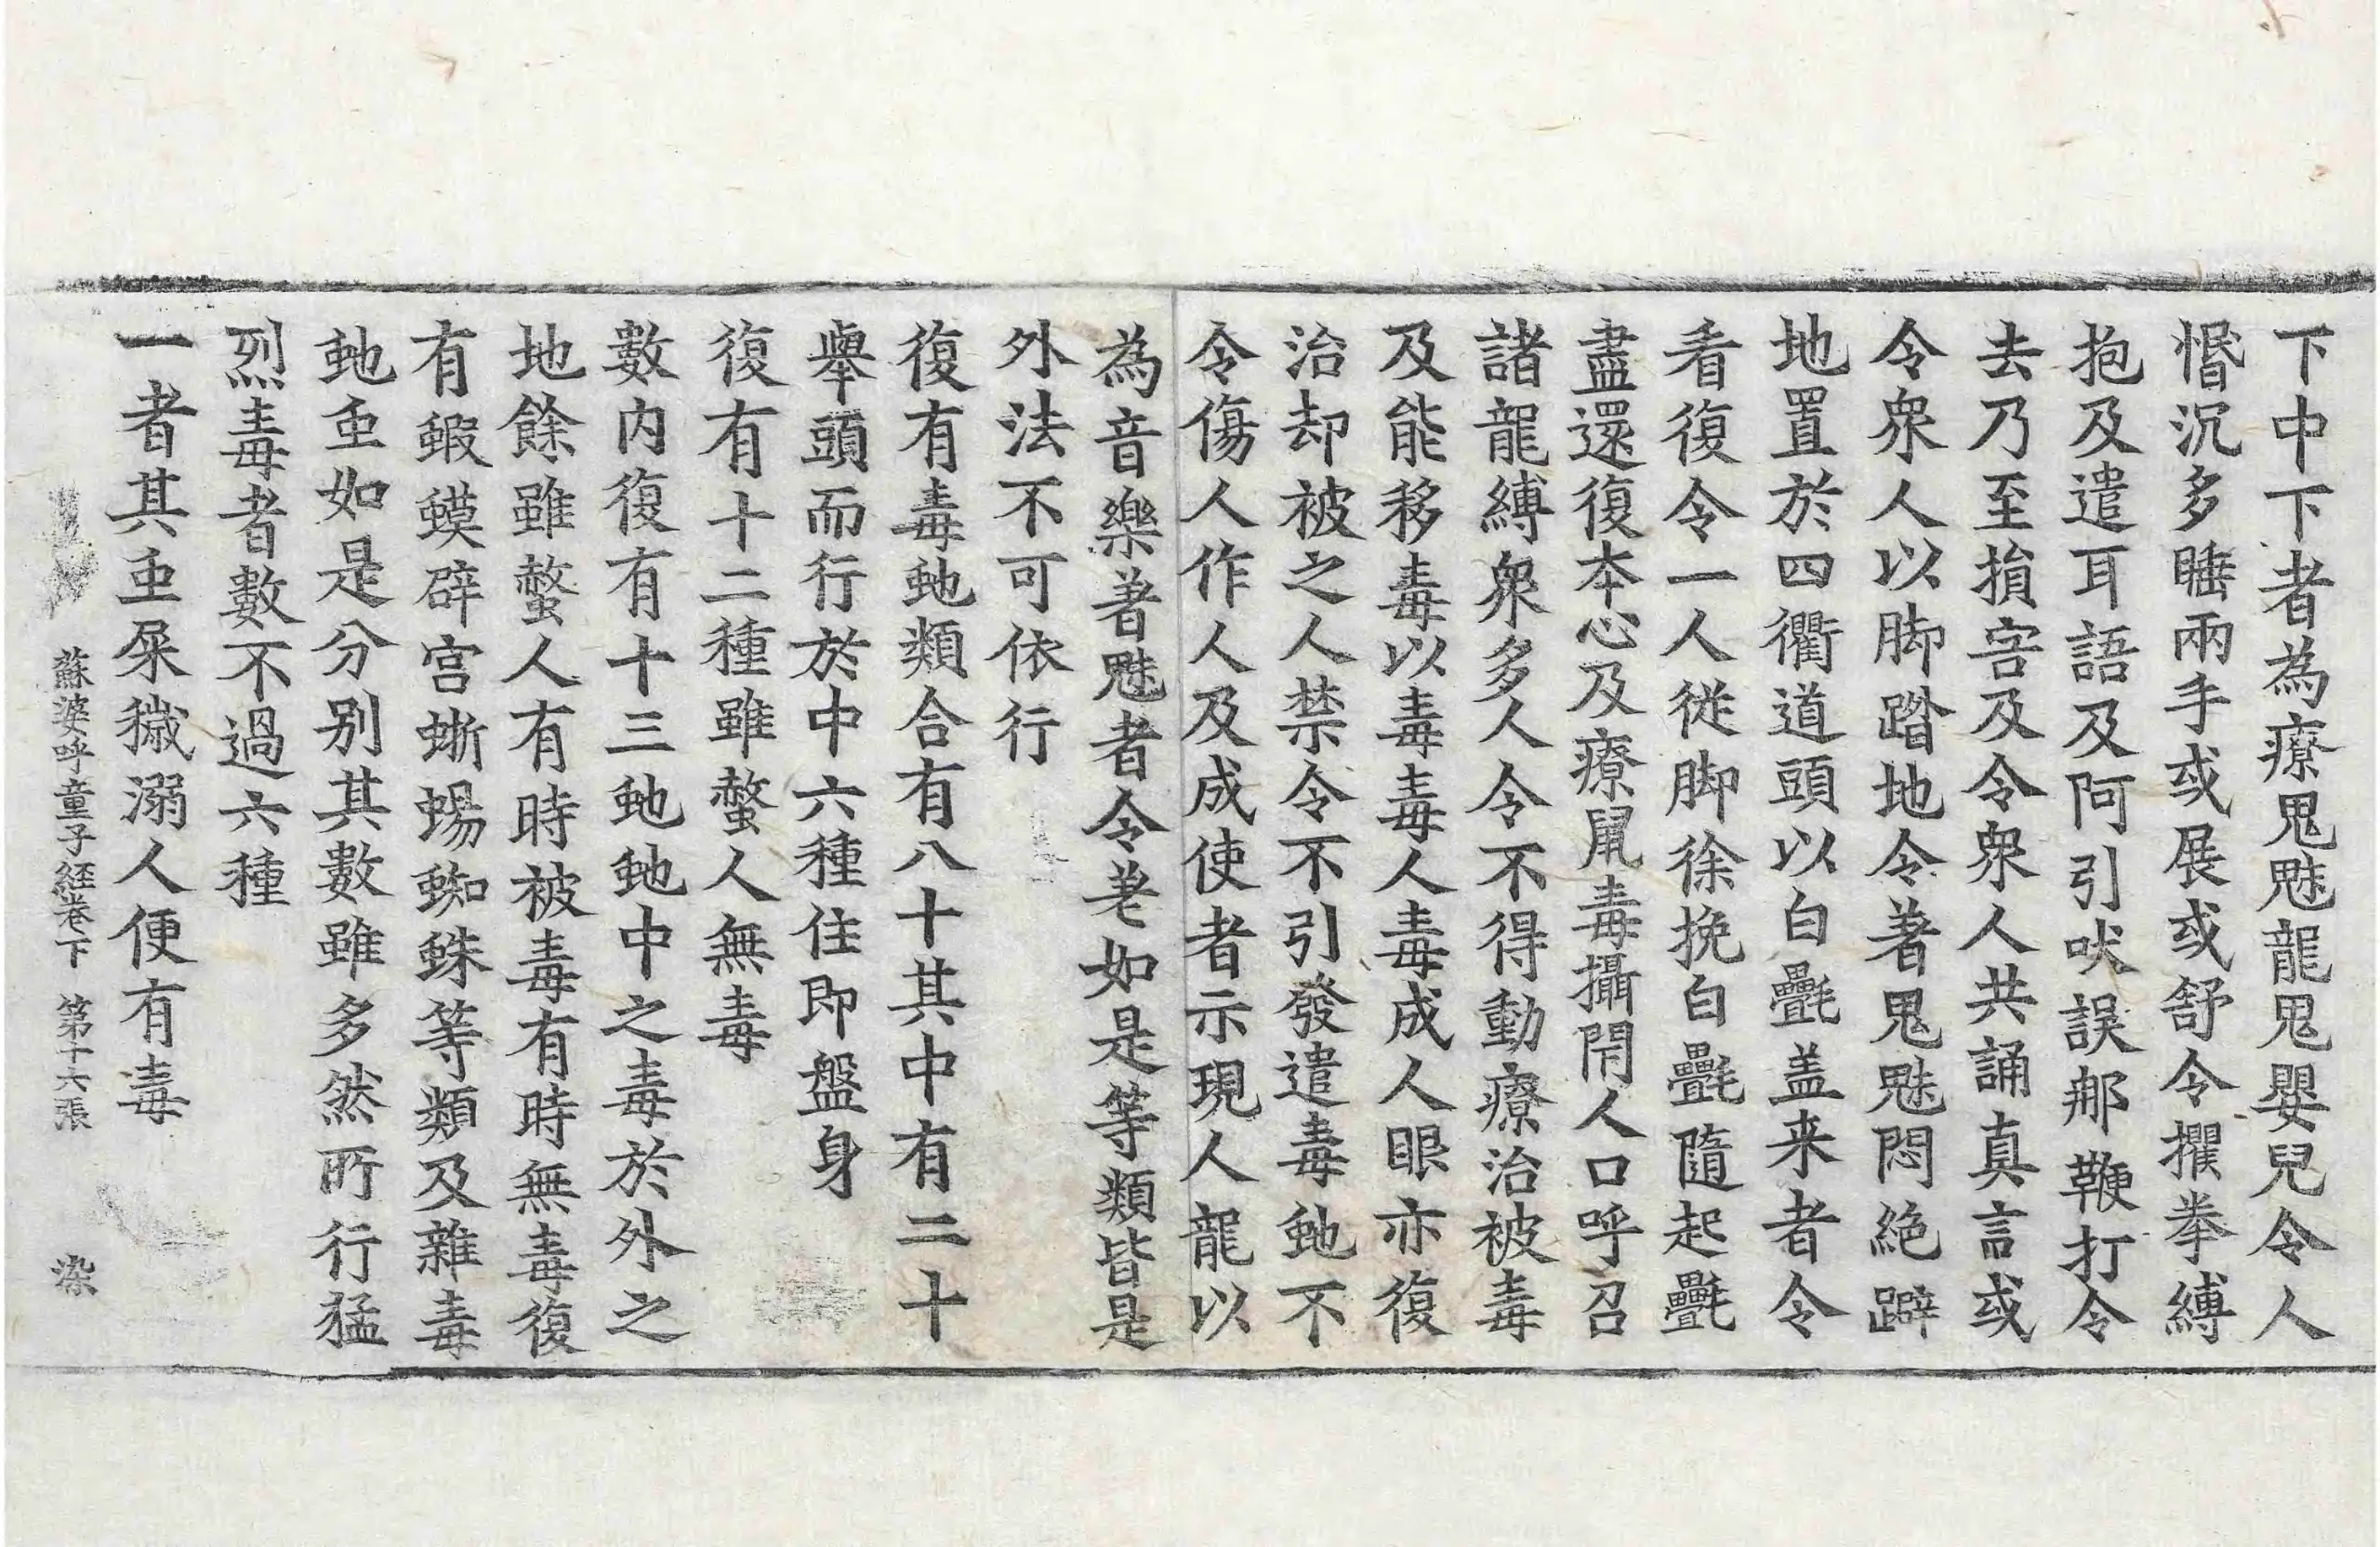 下中下者為療鬼魅龍鬼嬰兒令人
惛沉多睡兩手或展或舒令攞拳縛
抱及遣耳語及阿引吠誤那鞭打令
去乃至損害及令衆人共誦真言或
令衆人以脚踏地令著鬼魅悶絶躃
地置於四衢道頭以白㲲盖来者令
看復令一人從脚徐挽白㲲隨起㲲
盡還復本心及療鼠毒攝閇人口呼召
諸龍縛衆多人令不得動療治被毒
及能移毒以毒毒人毒成人眼亦復
治却被之人禁令不引發遣毒虵不
令傷人作人及成使者示現人龍以
為音樂著魅者令差如是等類皆是
外法不可依行
復有毒虵類合有八十其中有二十
舉頭而行於中六種住即盤身
復有十二種雖螫人無毒
數内復有十三虵虵中之毒於外之
地餘雖螫人有時被毒有時無毒復
有蝦蟆辟宫蜥蜴蜘蛛等類及雜毒
虵䖝如是分别其數雖多然所行猛
烈毒者數不過六種
一者其䖝屎穢溺人便有毒
蘇婆呼童子経卷下 第十六張 染